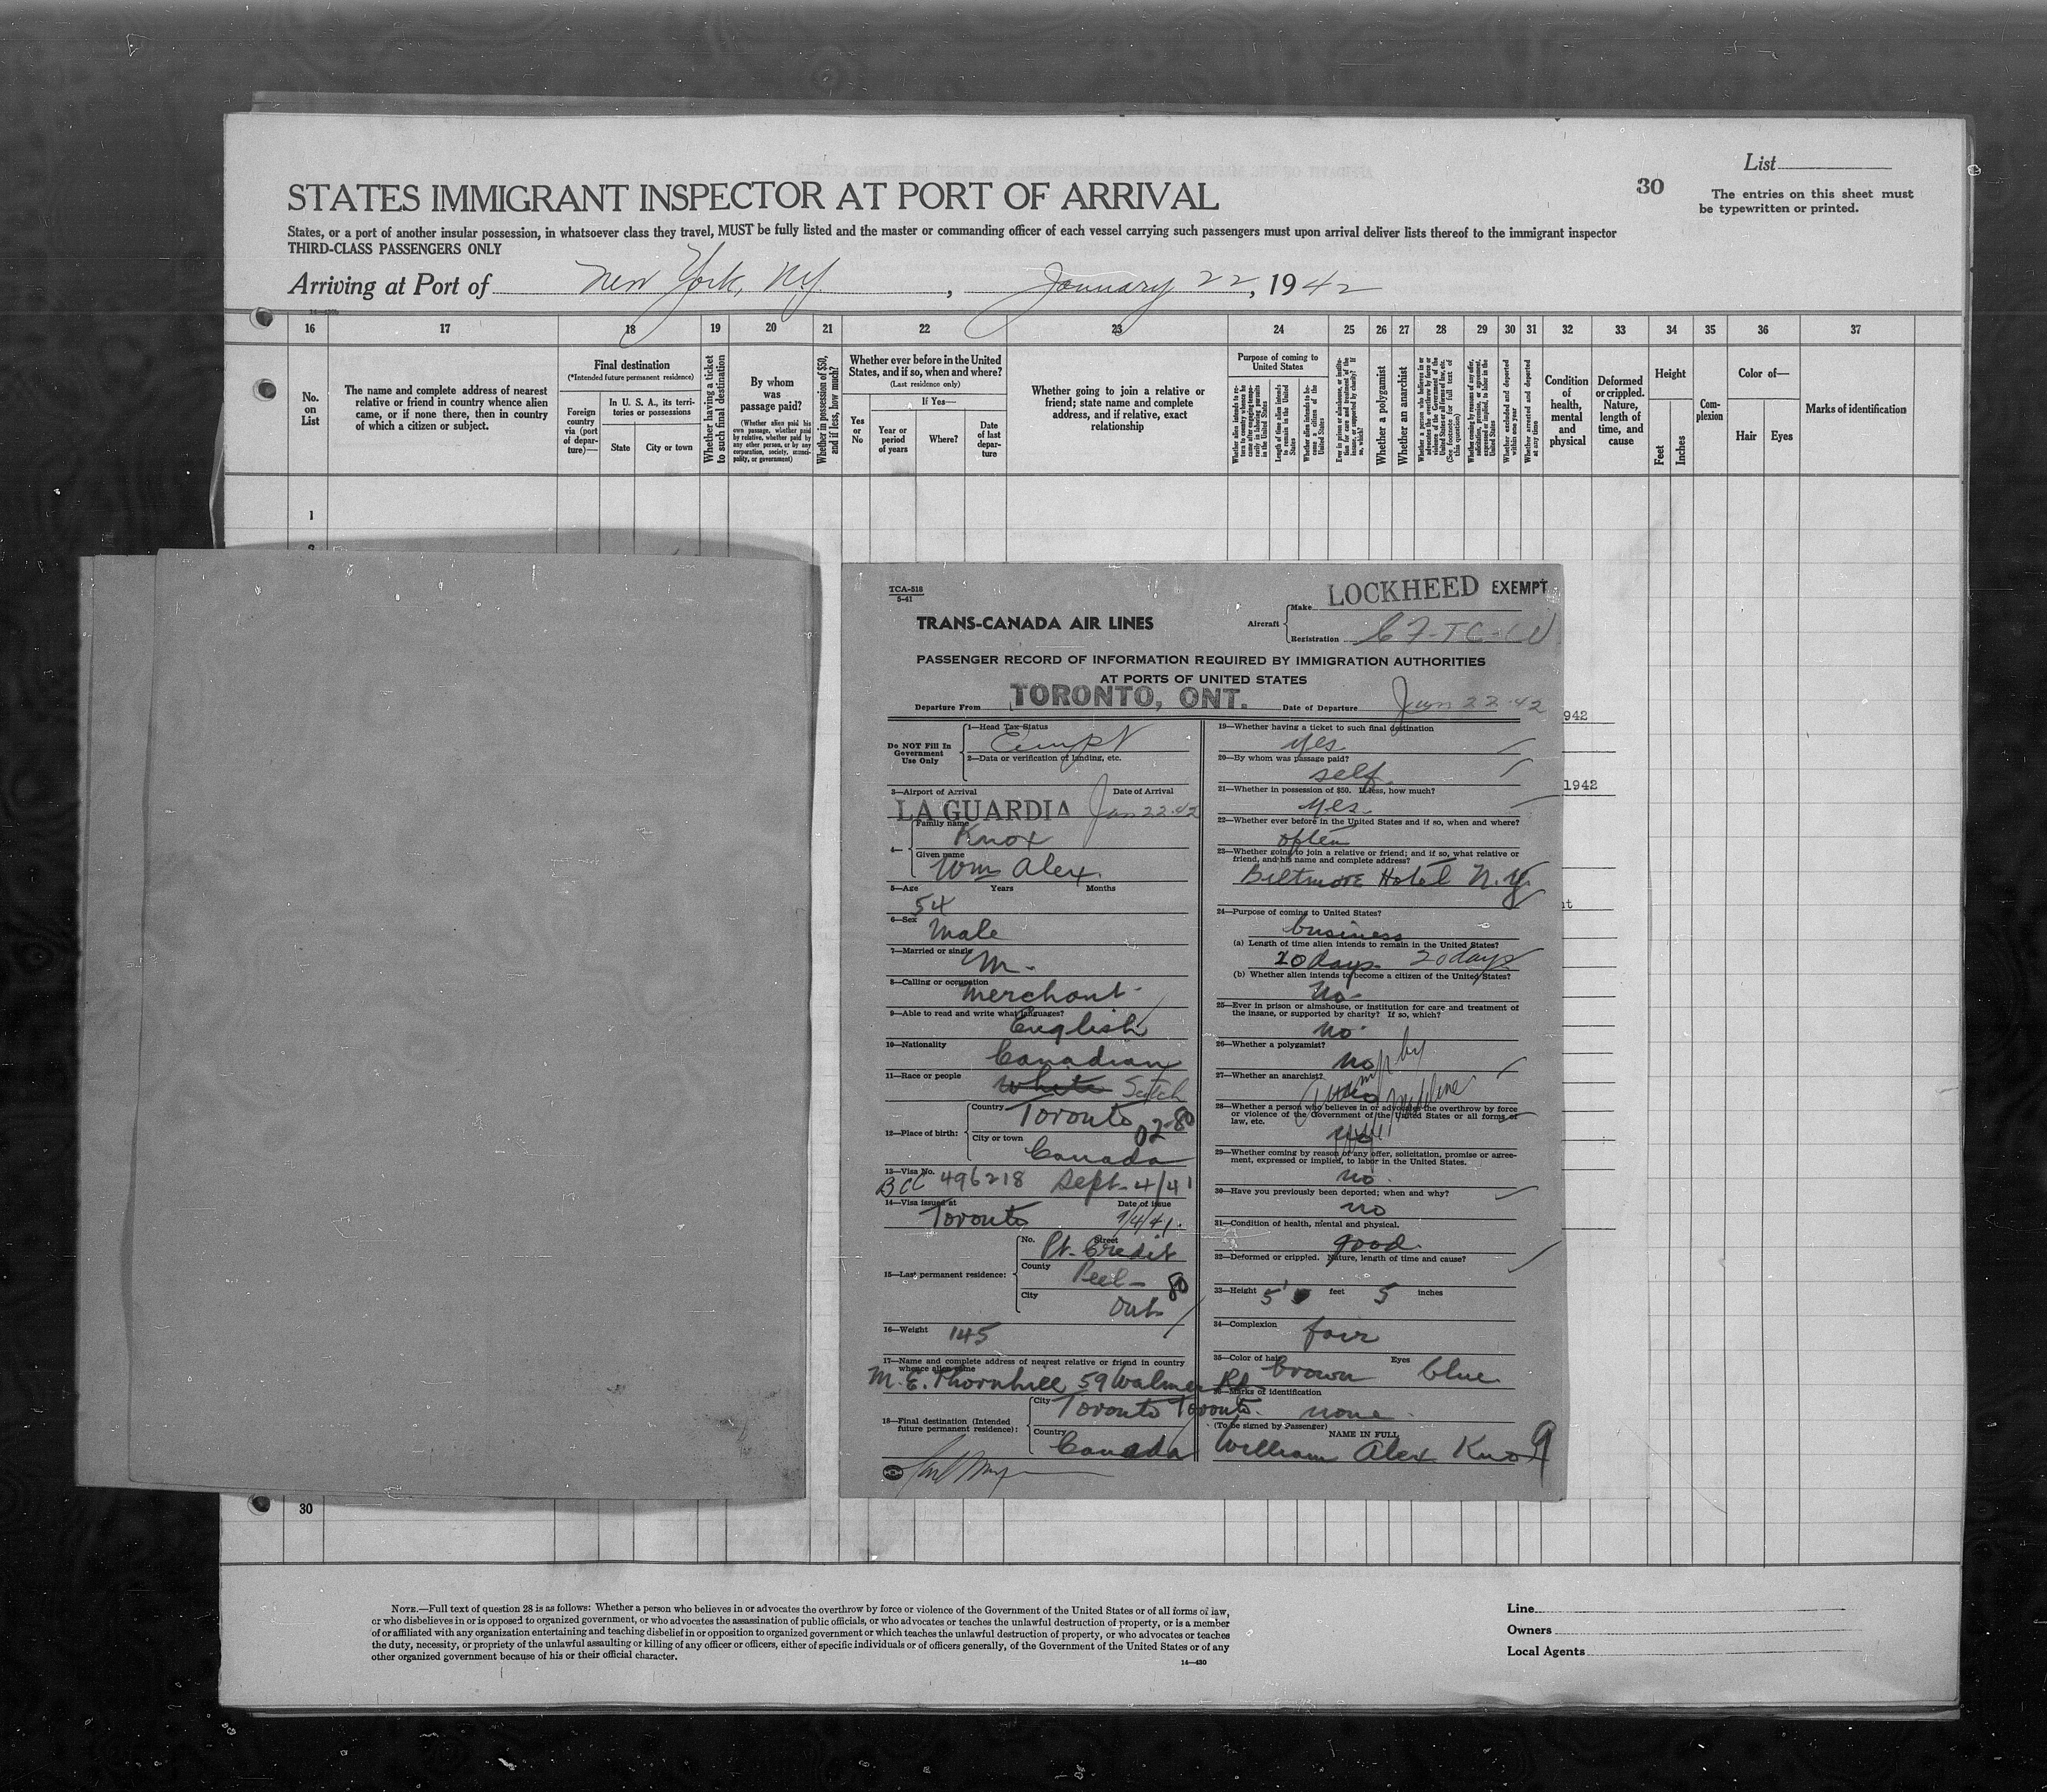 List
30
The entries on this sheet must
be typewritten or printed.
STATES IMMIGRANT INSPECTOR AT PORT OF ARRIVAL
States, or a port of another insular possession, in whatsoever class they travel, MUST be fully listed and the master or commanding officer of each vessel carrying such passengers must upon arrival deliver lists thereof to the immigrant inspector
THIRD-CLASS PASSENGERS ONLY
Arriving at Port of New York, NY, January 22, 1942
16 17 18 19 20 21 22 23 24 25 26 27 28 29 30 31 32 33 34 35 36 37
No. on List
The name and complete address of nearest relative or friend in country whence alien came, or if none there, then in country of which a citizen or subject.
Final destination
(*Intended future permanent residence)
Foreign country via (port of departure)—
In U. S. A., its territories or possessions
State
City or town
Whether having a ticket to such final destination
By whom was passage paid?
(Whether alien paid his own passage, whether paid by relative, whether paid by any other person, or by any corporation, society, municipality, or government)
Whether in possession of $50, and if less, how much?
Whether ever before in the United States, and if so, when and where?
(Last residence only)
Yes or No
If Yes—
Year or period of years
Where?
Date of last departure
Whether going to join a relative or friend; state name and complete address, and if relative, exact relationship
Purpose of coming to United States
Length of time alien intends to remain in the United States
Whether alien intends to become a citizen of the United States
Whether a polygamist
Whether an anarchist
Condition of health, mental and physical
Deformed or crippled. Nature, length of time, and cause
Height
Feet
Inches
Complexion
Color of—
Hair
Eyes
Marks of identification
1
TCA-518
5-41
TRANS-CANADA AIR LINES
Aircraft
Make LOCKHEED EXEMPT
Registration
PASSENGER RECORD OF INFORMATION REQUIRED BY IMMIGRATION AUTHORITIES
AT PORTS OF UNITED STATES
Departure From TORONTO, ONT. Date of Departure Jan 22.42
Do NOT Fill In Government Use Only
1—Head Tax Status
2—Data or verification of landing, etc.
3—Airport of Arrival LA GUARDIA Date of Arrival Jan 22.42
4—Family name Knox
Given name Wm Alex.
5—Age Years Months
54
6—Sex Male
7—Married or single M.
8—Calling or occupation Merchant
9—Able to read and write what languages? English
10—Nationality Canadian
11—Race or people White Scotch
12—Place of birth: Country Toronto 02-80
City or town Canada
13—Visa No. BCC 496218 Sept 4/41
14—Visa issued at Toronto Date of issue 9/4/41.
15—Last permanent residence: No. Street Pt. Credit
County Peel 80
City Ont
16—Weight 145
17—Name and complete address of nearest relative or friend in country whence alien came
M. E. Thornhill 59 Walmer Rd
Toronto.
18—Final destination (Intended future permanent residence): City Toronto
Country Canada
19—Whether having a ticket to such final destination
yes
20—By whom was passage paid?
self
21—Whether in possession of $50. If less, how much?
yes
22—Whether ever before in the United States and if so, when and where?
often
23—Whether going to join a relative or friend; and if so, what relative or friend, and his name and complete address?
Biltmore Hotel N.Y.
24—Purpose of coming to United States?
business
(a) Length of time alien intends to remain in the United States?
20 days 20 days
(b) Whether alien intends to become a citizen of the United States?
No
25—Ever in prison or almshouse, or institution for care and treatment of the insane, or supported by charity? If so, which?
no
26—Whether a polygamist?
no
27—Whether an anarchist?
no
28—Whether a person who believes in or advocates the overthrow by force or violence of the Government of the United States or all forms of law, etc.
no
29—Whether coming by reason of any offer, solicitation, promise or agreement, expressed or implied, to labor in the United States.
no
30—Have you previously been deported; when and why?
no
31—Condition of health, mental and physical.
good
32—Deformed or crippled. Nature, length of time and cause?
33—Height 5' feet 5 inches
34—Complexion fair
35—Color of hair brown Eyes blue
36—Marks of identification
none
(To be signed by Passenger) NAME IN FULL
William Alex Knox
942
1942
30
NOTE.—Full text of question 28 is as follows: Whether a person who believes in or advocates the overthrow by force or violence of the Government of the United States or of all forms of law,
or who disbelieves in or is opposed to organized government, or who advocates the assassination of public officials, or who advocates or teaches the unlawful destruction of property, or is a member
of or affiliated with any organization entertaining and teaching disbelief in or opposition to organized government or which teaches the unlawful destruction of property, or who advocates or teaches
the duty, necessity, or propriety of the unlawful assaulting or killing of any officer or officers, either of specific individuals or of officers generally, of the Government of the United States or of any
other organized government because of his or their official character.
14—430
Line
Owners
Local Agents